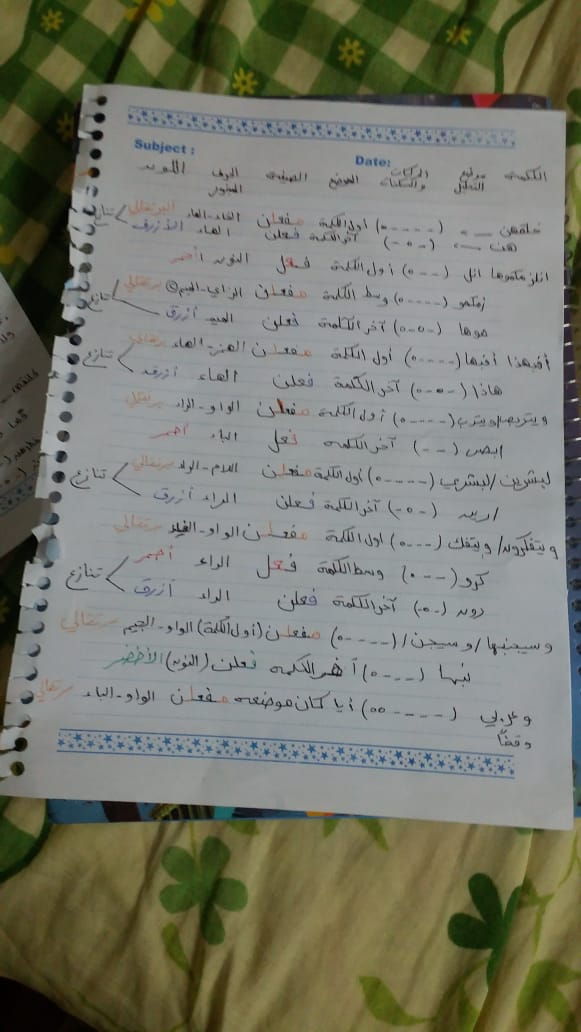 Subject :
Date:
الكلمة موضع التحليل الحركات والسكنات الموضع الصيغة الحرف المنبور اللون
خلقهن (-----ه) أول الكلمة مفعلن الخاء-الهاء البرتقالي تنازع
هن (-ه-) آخر الكلمة فعلن الهاء الأزرق
انلزمكموها انل (---ه) أول الكلمة فعل النون أحمر
زمكمو (-----ه) وسط الكلمة مفعلن الزاي-الميم برتقالي
موها (-ه-ه) آخر الكلمة فعلن الميم أزرق تنازع
أفبهذا أفبها (----ه) أول الكلمة مفعلن الهمزة-الهاء برتقالي
هاذا (-ه-ه) آخر الكلمة فعلن الهاء أزرق تنازع
ويتربص/ويترب (-----ه) أول الكلمة مفعلن الواو-الراء برتقالي
ابص (--) آخر الكلمة فعل الباء أحمر
لبشرين/لبشري (-----ه) أول الكلمة مفعلن اللام-الراء برتقالي
/رين (-ه-) آخر الكلمة فعلن الراء أزرق تنازع
ويتفكرون/ويتفك (---ه) أول الكلمة مفعلن الواو-الفاء برتقالي
كرو (---ه) وسط الكلمة فعل الراء أحمر
رون (-ه-) آخر الكلمة فعلن الراء أزرق تنازع
وسيجنبها/وسيجن/(-----ه) مفعلن (أول الكلمة) الواو-الجيم برتقالي
نبها (---ه) آخر الكلمة فعلن (النون) الأخضر
وعربي (----هه) أيا كان موضعه مفعلن الواو-الباء برتقالي
وقفاً